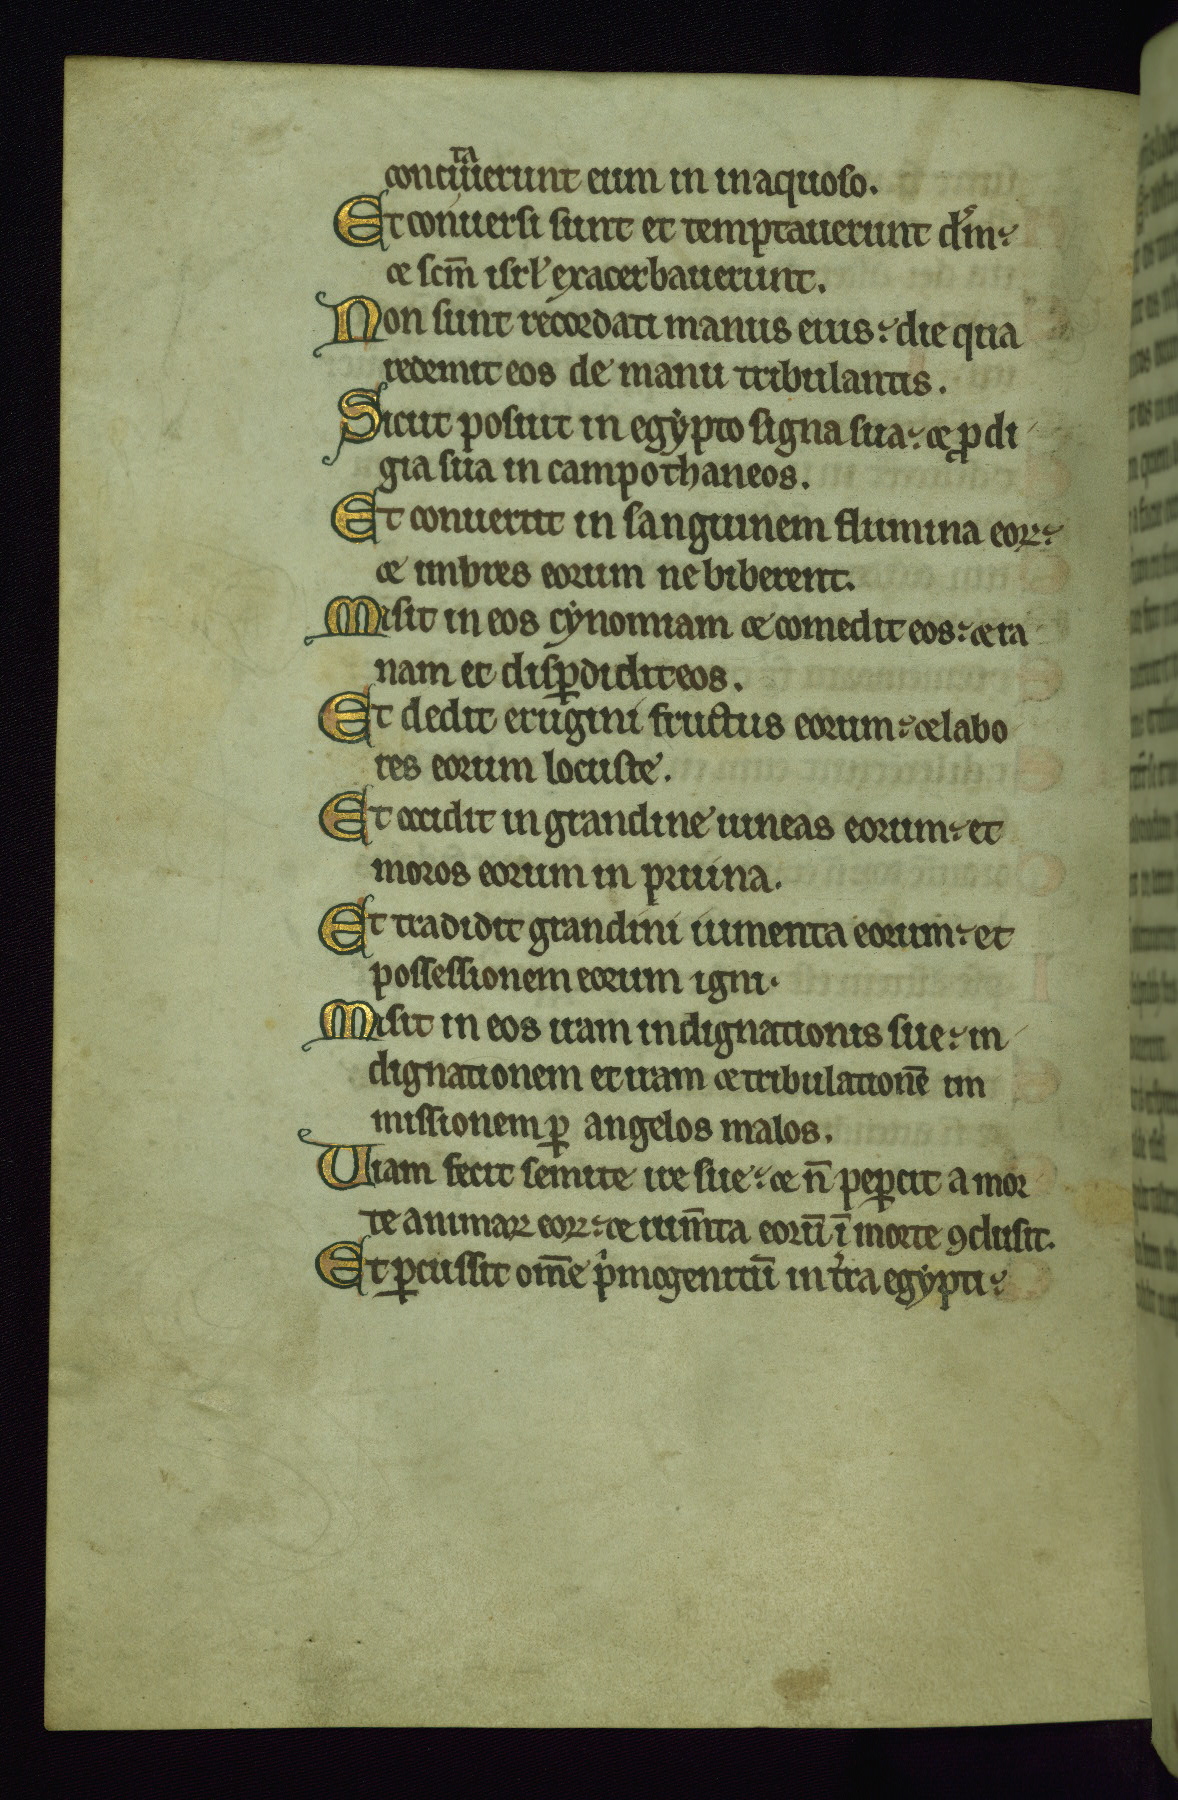 conciᵗᵃuerunt eum in inaquoso.
Et conuersi sunt et temptauerunt dm̄:
⁊ scm̄ isrl̓ exacerbauerunt.
Non sunt recordati manus eius: die qua
redemit eos de manu tribulantis.
Sicut posuit in egẏpto signa sua: ⁊ ꝓdi
gia sua in campothaneos.
Et conuertit in sanguinem flumina eoꝝ:
⁊ imbres eorum ne biberent.
Misit in eos cẏnomiam ⁊ comedit eos: ⁊ ra
nam et disꝑdidit eos.
Et dedit erugini fructus eorum: ⁊ labo
res eorum locuste.
Et occidit in grandine uineas eorum: et
moros eorum in pruina.
Et tradidit grandini iumenta eorum: et
possessionem eorum igni.
Misit in eos iram indignationis sue: in
dignationem et iram ⁊ tribulationē im
missionem ꝑ angelos malos.
Uiam fecit semite ire sue: ⁊ n̄ peꝑcit a mor
te animaꝝ eoꝝ: ⁊ ium̄ta eorū ī morte ꝯclusit.
Et ꝑcussit om̄e pͥmogenitū in tr̓ra egẏpti: